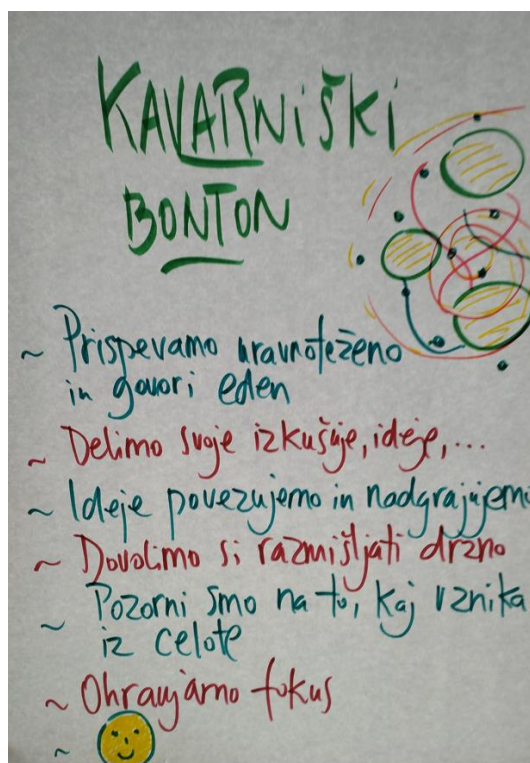 KAVARNIŠKI
BONTON
~ Prispevamo uravnoteženo
in govori eden
~ Delimo svoje izkušnje, ideje, ...
~ Ideje povezujemo in nadgrajujemo
~ Dovolimo si razmišljati drzno
~ Pozorni smo na to, kaj vznika
iz celote
~ Ohranjamo fokus
~